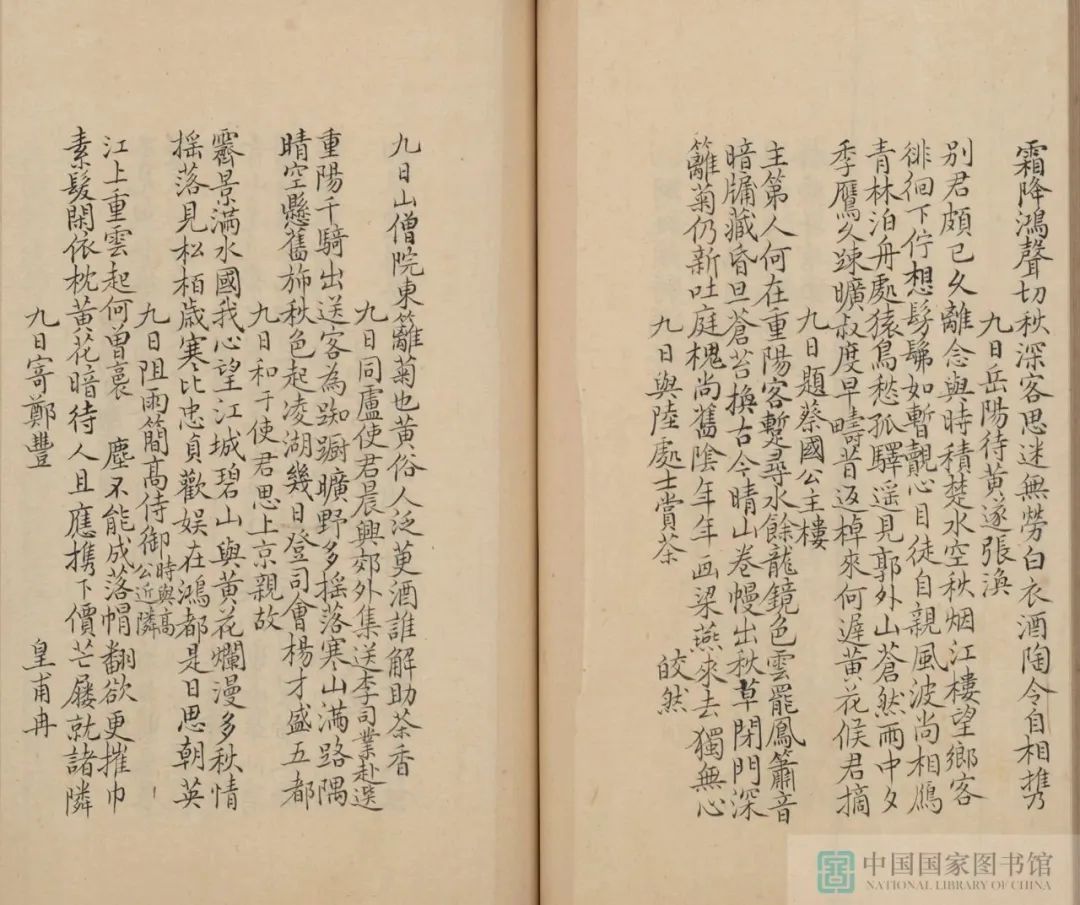 霜降鴻聲切秋深客思迷無勞白衣酒陶令自相携
九日岳陽待黄遂張渙
別君頗已久離念與時積楚水空秋烟江樓望鄉客
徘徊下佇想髣髴如暫覿心目徒自親風波尚相
青林泊舟處猿鳥愁孤驛遥見郭外山蒼然雨中夕
季鷹久踈曠叔度早疇昔返棹來何遲黄花候君摘
九日題蔡國公主樓
主第人何在重陽客暫尋水餘龍鏡色雲罷鳳簫音
暗牖藏昏旦蒼苔換古今晴山卷幔出秋草閉門深
籬菊仍新吐庭槐尚舊陰年年画梁燕來去獨無心
九日與陸處士賞茶 皎然
九日山僧院東籬菊也黄俗人泛更酒誰解助茶香
九日同盧使君晨興郊外集送李司業赴選
重陽千騎出送客為踟蹰曠野多摇落寒山滿路隅
晴空懸舊斾秋色起凌湖幾日登司會楊才盛五都
九日和于使君思上京親故
霽景滿水國我心望江城碧山與黄花爛漫多秋情
摇落見松栢歲寒比忠貞歡娱在鴻都是日思朝英
九日阻雨簡高侍御時與高公近隣
江上重雲起何曾裛 塵不能成落帽翻欲更摧巾
素髮閑依枕黄花暗待人且應携下價芒屨就諸隣
九日寄鄭豐 皇甫冉
中国国家图书馆
NATIONAL LIBRARY OF CHINA